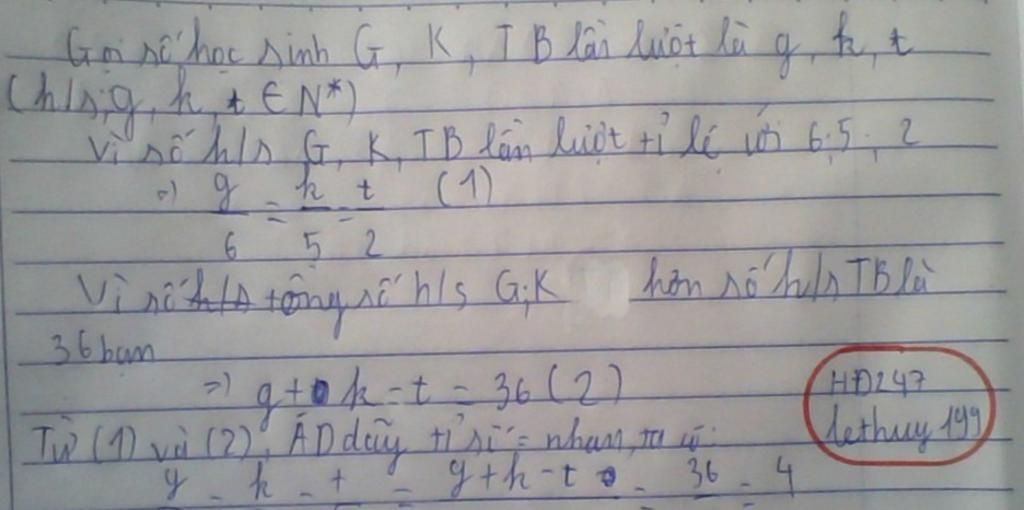 Gọi số học sinh G, K, TB lần lượt là g, k, t
(h/s; g, k, t ∈ N*)
Vì số h/s G, K, TB lần lượt tỉ lệ với 6; 5; 2
=) g/6 = k/5 = t/2 (1)
Vì số h/s tổng số h/s G; K hơn số h/s TB là
36 bạn
=) g + k - t = 36 (2)
Từ (1) và (2), ÁD dãy tỉ số = nhau, ta có:
g = k = t = g + k - t = 36 = 4
HD247
lethuy199